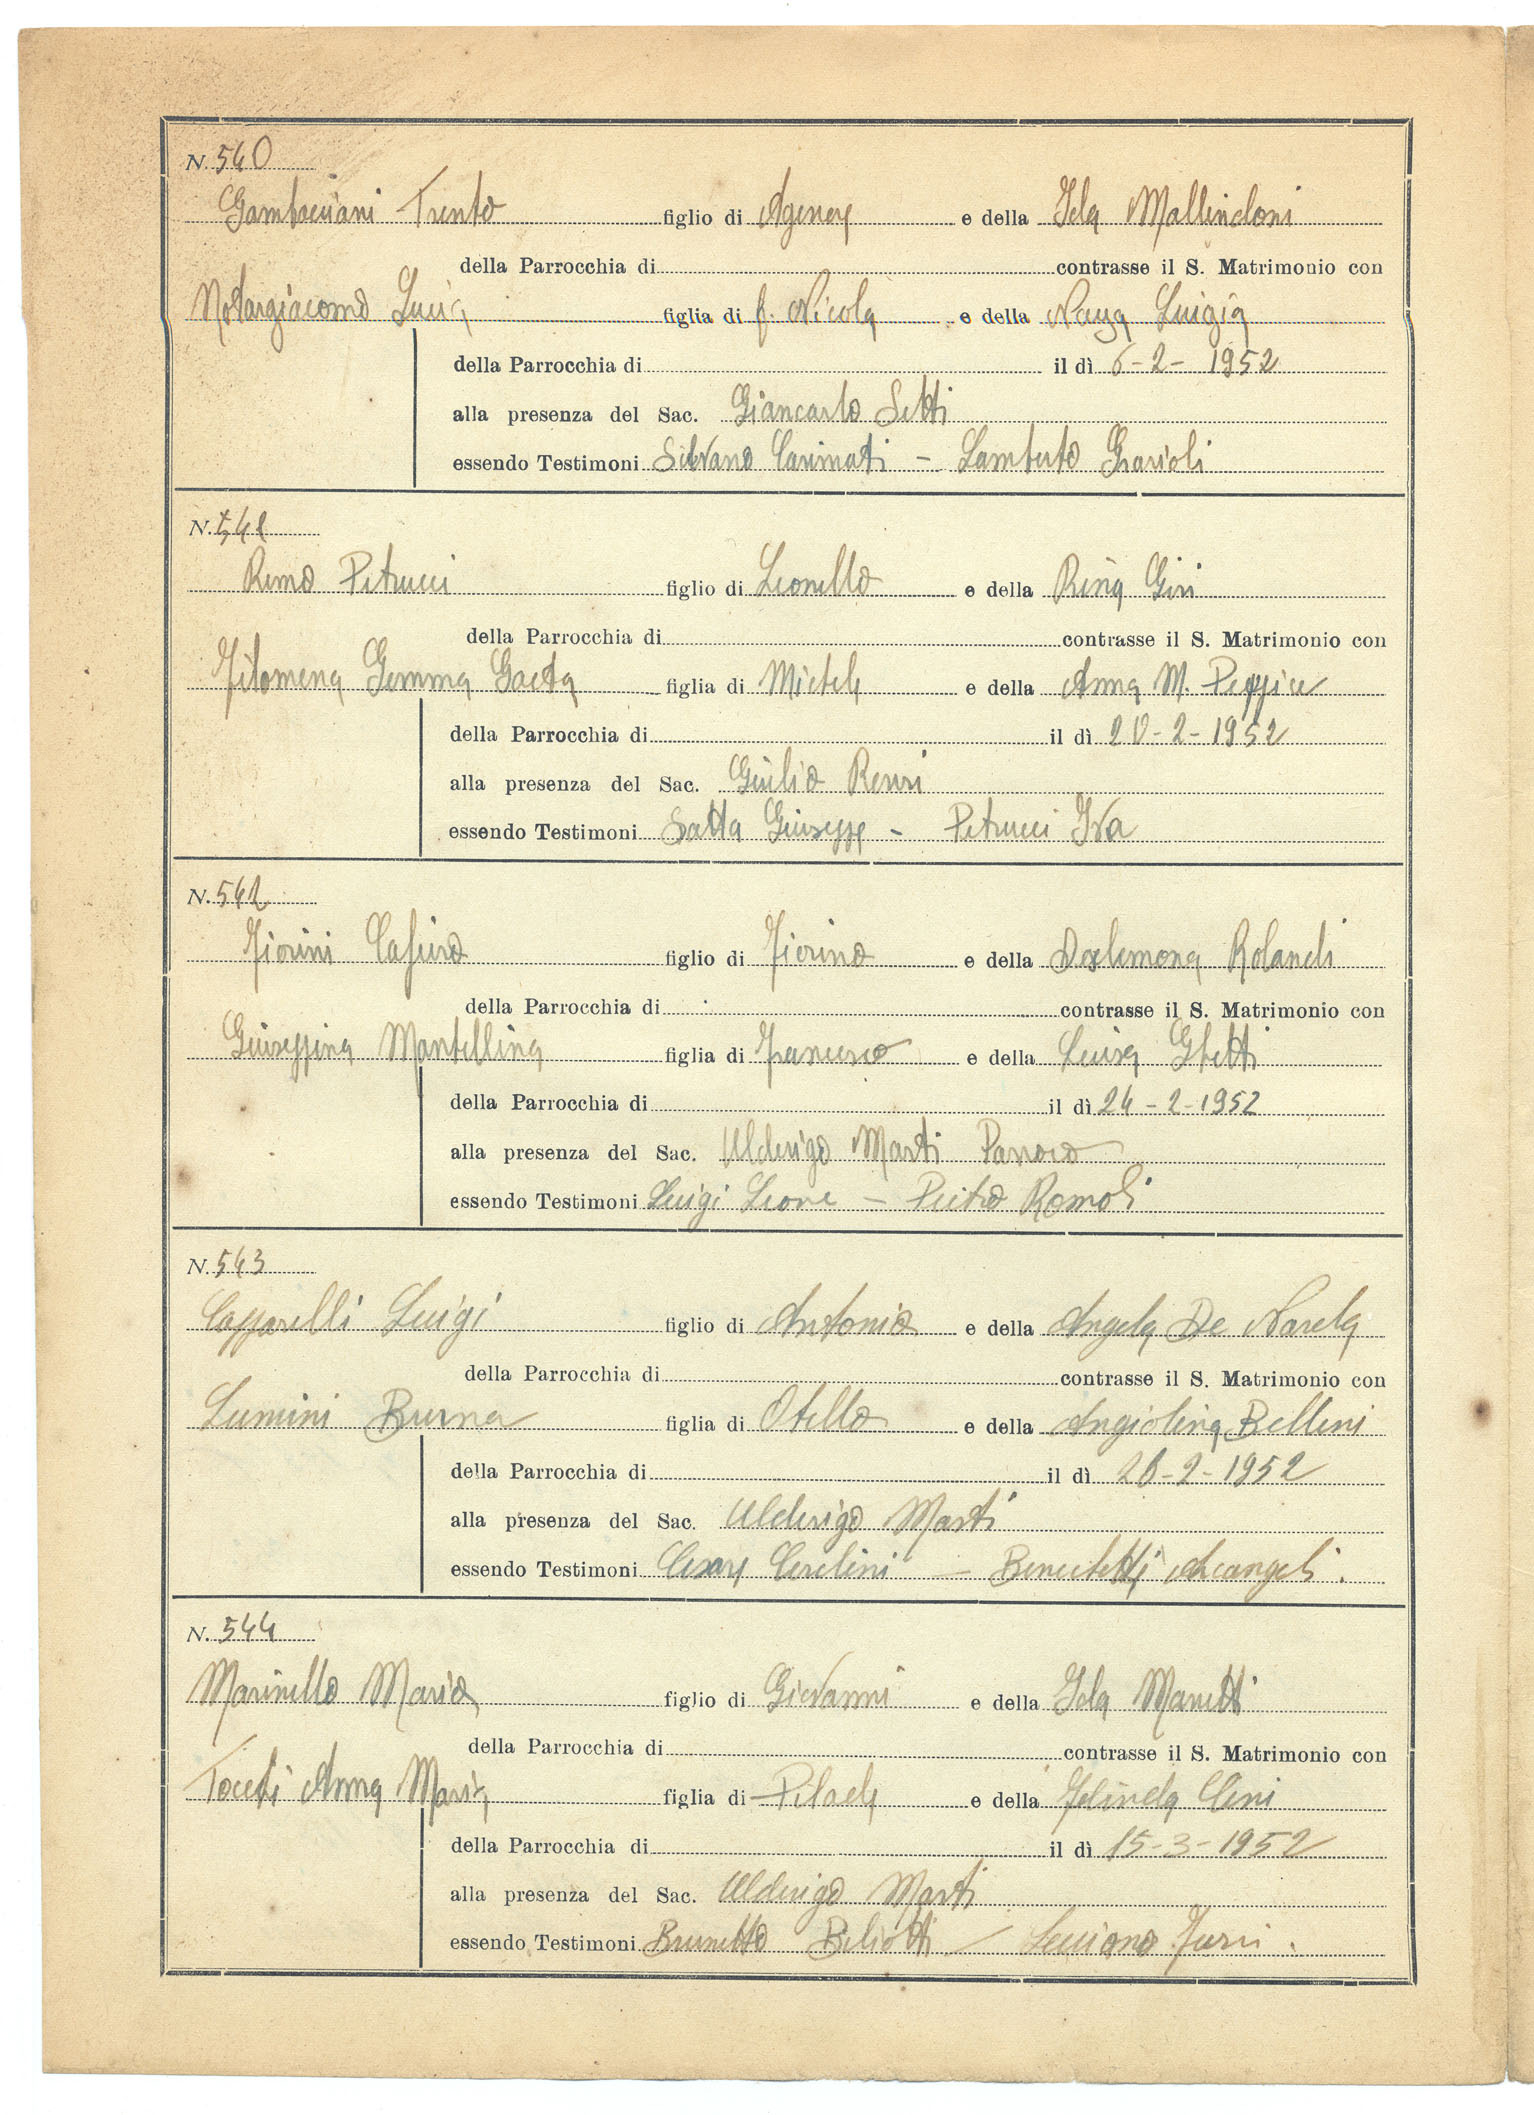 N. 540
Gambacciani Trento figlio di Agenore e della Ida Mallindoni
della Parrocchia di contrasse il S. Matrimonio con
Notargiacomo Lucia figlia di f. Nicola e della Luigia
della Parrocchia di il dì 6-2-1952
alla presenza del Sac. Giancarlo Setti
essendo Testimoni Silvano Carimati - Lamberto Grazioli
N. 541
Remo Petrucci figlio di Leonello e della Rina Giri
della Parrocchia di contrasse il S. Matrimonio con
Filomena Gemma Gaeta figlia di Michele e della Anna M.
della Parrocchia di il dì 20-2-1952
alla presenza del Sac. Giulio Renzi
essendo Testimoni Satta Giuseppe - Petrucci Iva
N. 542
Fiorini Cafiero figlio di Fiorino e della Desdemona Rolandi
della Parrocchia di contrasse il S. Matrimonio con
Giuseppina Mantellina figlia di Francesco e della Luisa Ghetti
della Parrocchia di il dì 24-2-1952
alla presenza del Sac. Ulderigo Masti Parroco
essendo Testimoni Luigi Leone - Pietro Romoli
N. 543
Capparelli Luigi figlio di Antonio e della Angela De
della Parrocchia di contrasse il S. Matrimonio con
Lumini Bruna figlia di Otello e della Angiolina Bellini
della Parrocchia di il dì 26-2-1952
alla presenza del Sac. Ulderigo Masti
essendo Testimoni Cesare - Benedetti Arcangeli.
N. 544
Marinello Mario figlio di Giovanni e della Ida Manetti
della Parrocchia di contrasse il S. Matrimonio con
Anna Maria figlia di Pilade e della Cini
della Parrocchia di il dì 15-3-1952
alla presenza del Sac. Ulderigo Masti
essendo Testimoni Brunetto - Luciano